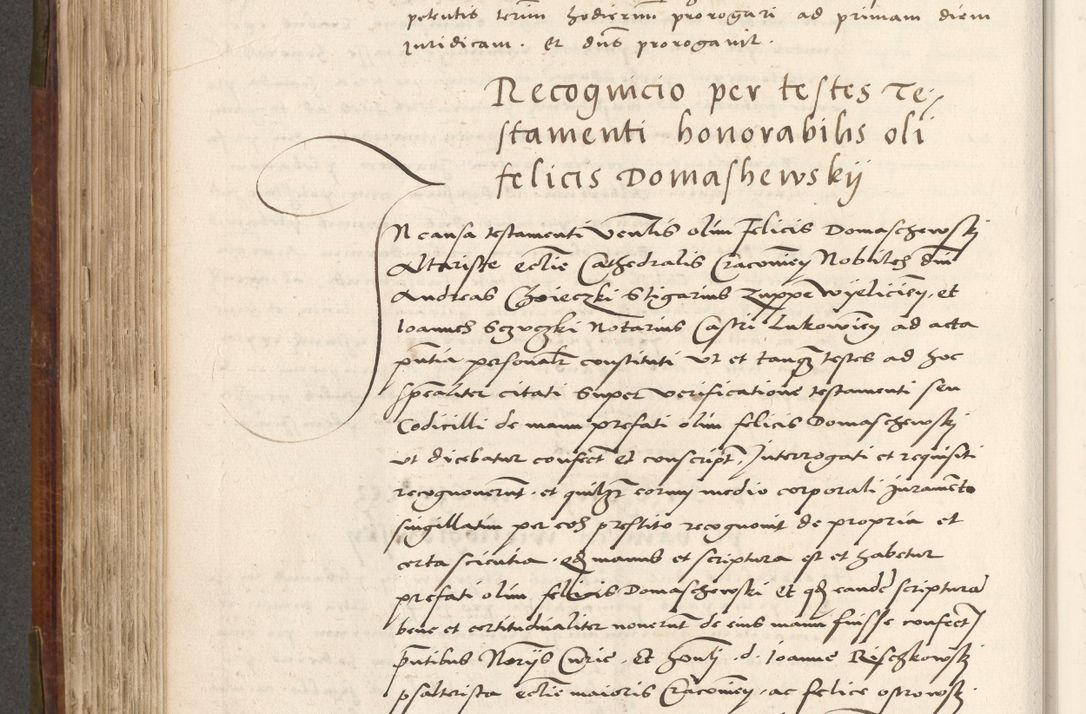 petentis terim hodiernu prorogari ad primam diem
iuridicam. Et dns prorogavit.
Recognicio per testes Te-
stamenti honorabilis oli
felicis Domashewskij
In causa testamenti venlis olim Felicis Domaschewskj
Altariste ecclie Cathedralis Cracovien Nobiles dni
Andreas Stigarius Zuppe Wyeliciен, et
Ioannes Notarius Castri Lukowien ad acta
pntia personalr constituti ut et tanq testes ad hoc
spealiter citati super verificatione testamenti seu
Codicilli de manu prefati olim felicis Domaschewskj
ut dicebatur confect et conscript, Interrogati et requisiti
recognoverunt. et quilibet eorum medio corporali Iuramento
singillatim per eos prestito recognovit de propria et
certa scientia. qd manus et scriptura est et habetur
prefati olim felicis Domaschewski Et qd eande scriptura
bene et certitudinaliter noverunt de eius manu fuisse confect
pntibus Noriis Curie. Et honli. d. Ioanne Reschkowskj
psalterista ecclie maioris Cracovien. ac felice ostrowskj.